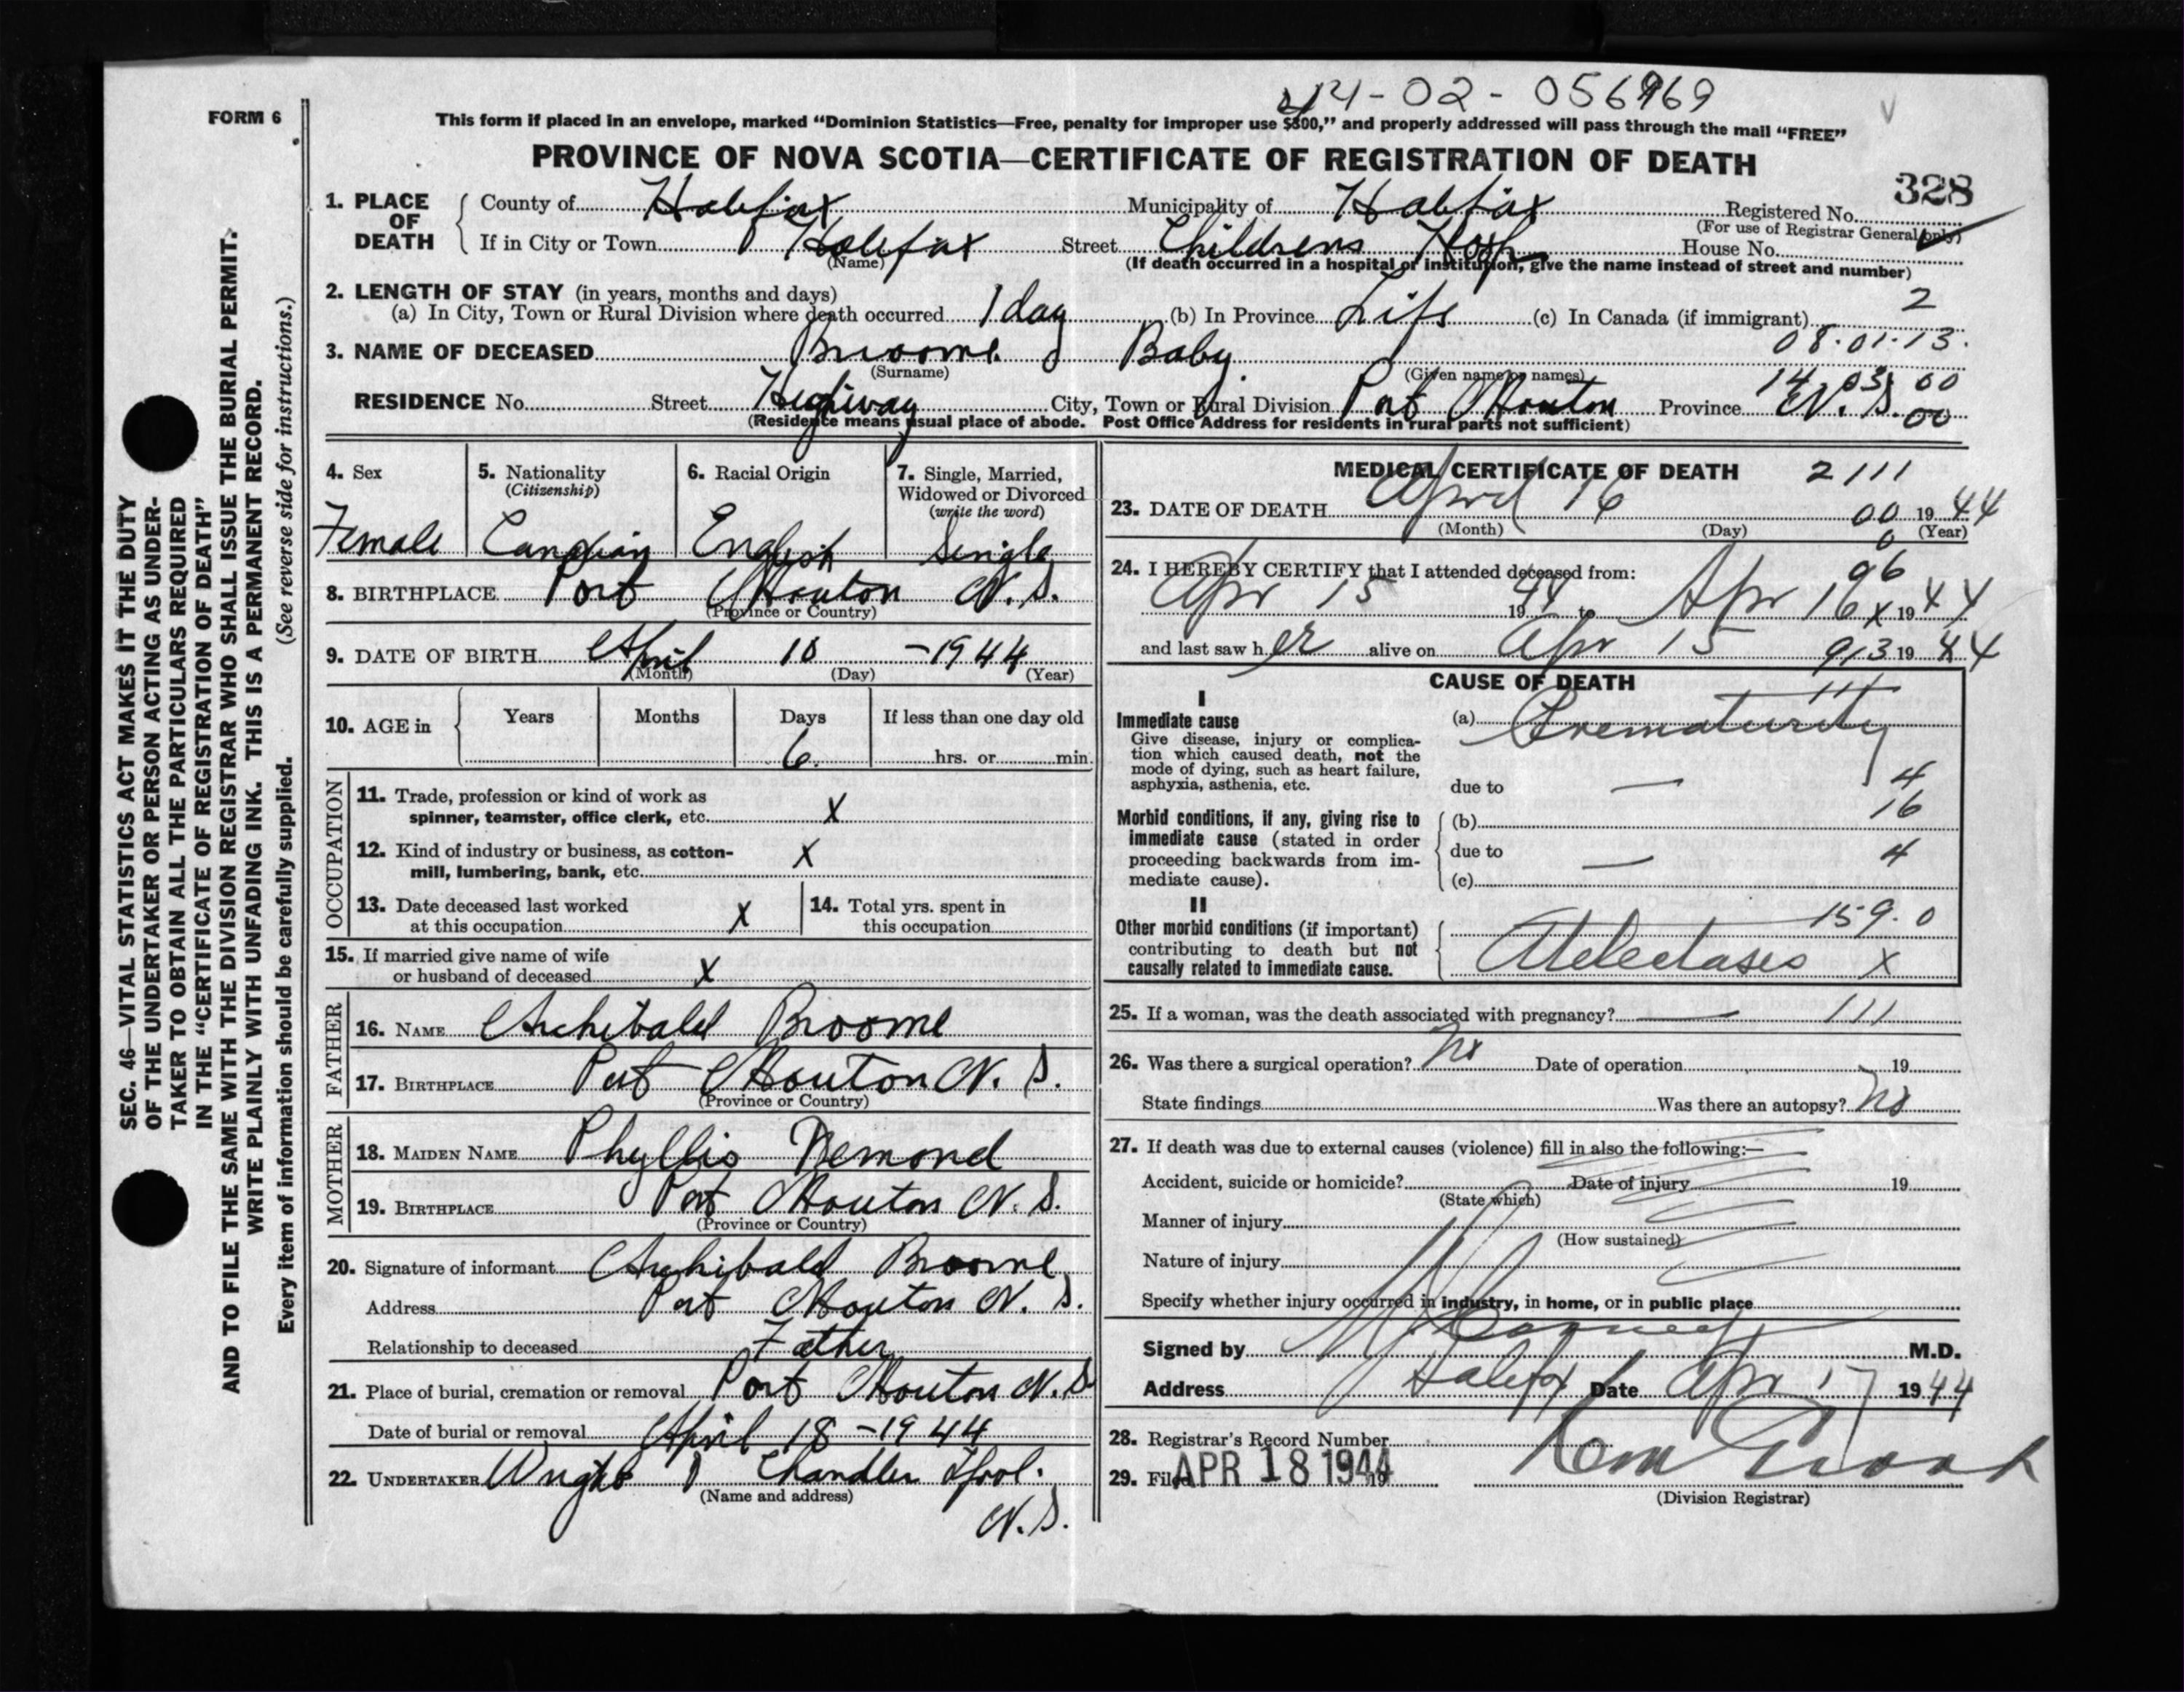 44-02-056969
FORM 6
This form if placed in an envelope, marked “Dominion Statistics—Free, penalty for improper use $300,” and properly addressed will pass through the mail “FREE”
PROVINCE OF NOVA SCOTIA—CERTIFICATE OF REGISTRATION OF DEATH
328
1. PLACE OF DEATH County of Halifax Municipality of Halifax Registered No.
(For use of Registrar General only)
If in City or Town Halifax Street Childrens Hosp House No.
(Name) (If death occurred in a hospital or institution, give the name instead of street and number)
2. LENGTH OF STAY (in years, months and days)
(a) In City, Town or Rural Division where death occurred 1 day (b) In Province Life (c) In Canada (if immigrant) 2
08.01.13.
3. NAME OF DECEASED Broome Baby
(Surname) (Given name or names)
14.03.00
RESIDENCE No. Street Highway City, Town or Rural Division Port Mouton Province N.S. 00
(Residence means usual place of abode. Post Office Address for residents in rural parts not sufficient)
4. Sex Female
5. Nationality (Citizenship) Canadian
6. Racial Origin English
7. Single, Married, Widowed or Divorced (write the word) Single
8. BIRTHPLACE Port Mouton N.S.
(Province or Country)
9. DATE OF BIRTH April 10 - 1944
(Month) (Day) (Year)
10. AGE in Years Months Days If less than one day old
6. hrs. or min.
OCCUPATION
11. Trade, profession or kind of work as spinner, teamster, office clerk, etc. X
12. Kind of industry or business, as cotton-mill, lumbering, bank, etc. X
13. Date deceased last worked at this occupation X
14. Total yrs. spent in this occupation
15. If married give name of wife or husband of deceased X
FATHER
16. NAME Archibald Broome
17. BIRTHPLACE Port Mouton N.S.
(Province or Country)
MOTHER
18. MAIDEN NAME Phyllis Demond
19. BIRTHPLACE Port Mouton N.S.
(Province or Country)
20. Signature of informant Archibald Broome
Address Port Mouton N.S.
Relationship to deceased Father
21. Place of burial, cremation or removal Port Mouton N.S.
Date of burial or removal April 18 - 1944
22. UNDERTAKER Wright Chandler Lpool.
(Name and address)
N.S.
MEDICAL CERTIFICATE OF DEATH 2111
23. DATE OF DEATH April 16 00 1944
(Month) (Day) (Year)
0
24. I HEREBY CERTIFY that I attended deceased from: 96
Apr 15 1944 to Apr 16 x 1944
and last saw her alive on Apr 15 913 1944
CAUSE OF DEATH
111
I
Immediate cause
Give disease, injury or complication which caused death, not the mode of dying, such as heart failure, asphyxia, asthenia, etc.
(a) Prematurity
due to — 4
16
Morbid conditions, if any, giving rise to immediate cause (stated in order proceeding backwards from immediate cause).
(b)
due to — 4
(c)
II
Other morbid conditions (if important) contributing to death but not causally related to immediate cause.
159.0
Atelectasis X
25. If a woman, was the death associated with pregnancy? — 111
26. Was there a surgical operation? No Date of operation 19
State findings Was there an autopsy? No
27. If death was due to external causes (violence) fill in also the following:—
Accident, suicide or homicide? Date of injury 19
(State which)
Manner of injury
(How sustained)
Nature of injury
Specify whether injury occurred in industry, in home, or in public place
Signed by M.D.
Address Halifax Date Apr 17 1944
28. Registrar's Record Number
29. Filed APR 18 1944 19
(Division Registrar)
SEC. 46—VITAL STATISTICS ACT MAKES IT THE DUTY
OF THE UNDERTAKER OR PERSON ACTING AS UNDER-
TAKER TO OBTAIN ALL THE PARTICULARS REQUIRED
IN THE “CERTIFICATE OF REGISTRATION OF DEATH”
AND TO FILE THE SAME WITH THE DIVISION REGISTRAR WHO SHALL ISSUE THE BURIAL PERMIT.
WRITE PLAINLY WITH UNFADING INK. THIS IS A PERMANENT RECORD.
Every item of information should be carefully supplied. (See reverse side for instructions.)